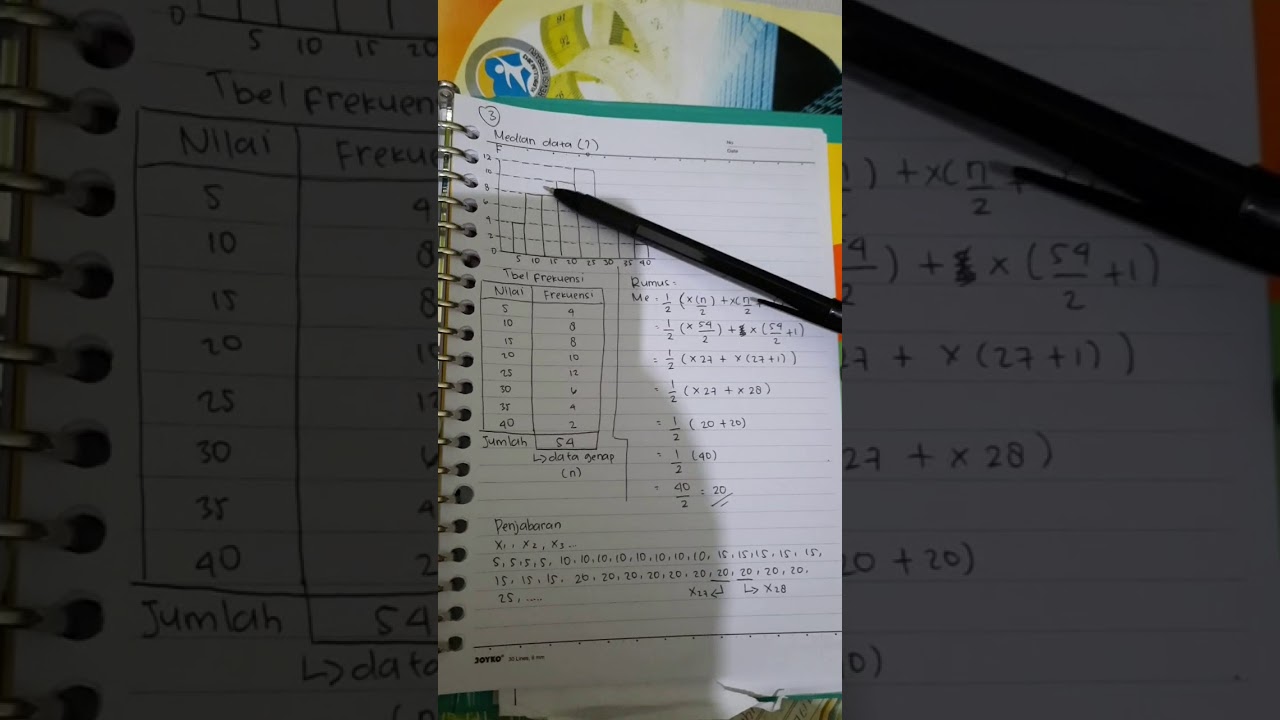 3
Median data (?)
No
Date
F
12
10
8
6
4
2
0
5 10 15 20 25 30 35 40
Tbel Frekuensi
Nilai Frekuensi
5 4
10 8
15 8
20 10
25 12
30 6
35 4
40 2
Jumlah 54
↳ data genap
(n)
Rumus:
Me = 1/2 (x(n/2) + x(n/2 +
= 1/2 (x 54/2) + x (54/2 +1)
= 1/2 (x27 + x(27+1))
= 1/2 (x27 + x28)
= 1/2 (20 + 20)
= 1/2 (40)
= 40/2 = 20
Penjabaran
x1, x2, x3...
5, 5, 5, 5, 10, 10, 10, 10, 10, 10, 10, 10, 15, 15, 15, 15, 15,
15, 15, 15, 20, 20, 20, 20, 20, 20, 20, 20, 20, 20.
25, .....
x27 ↲ ↳ x28
JOYKO 30 Lines, 8 mm